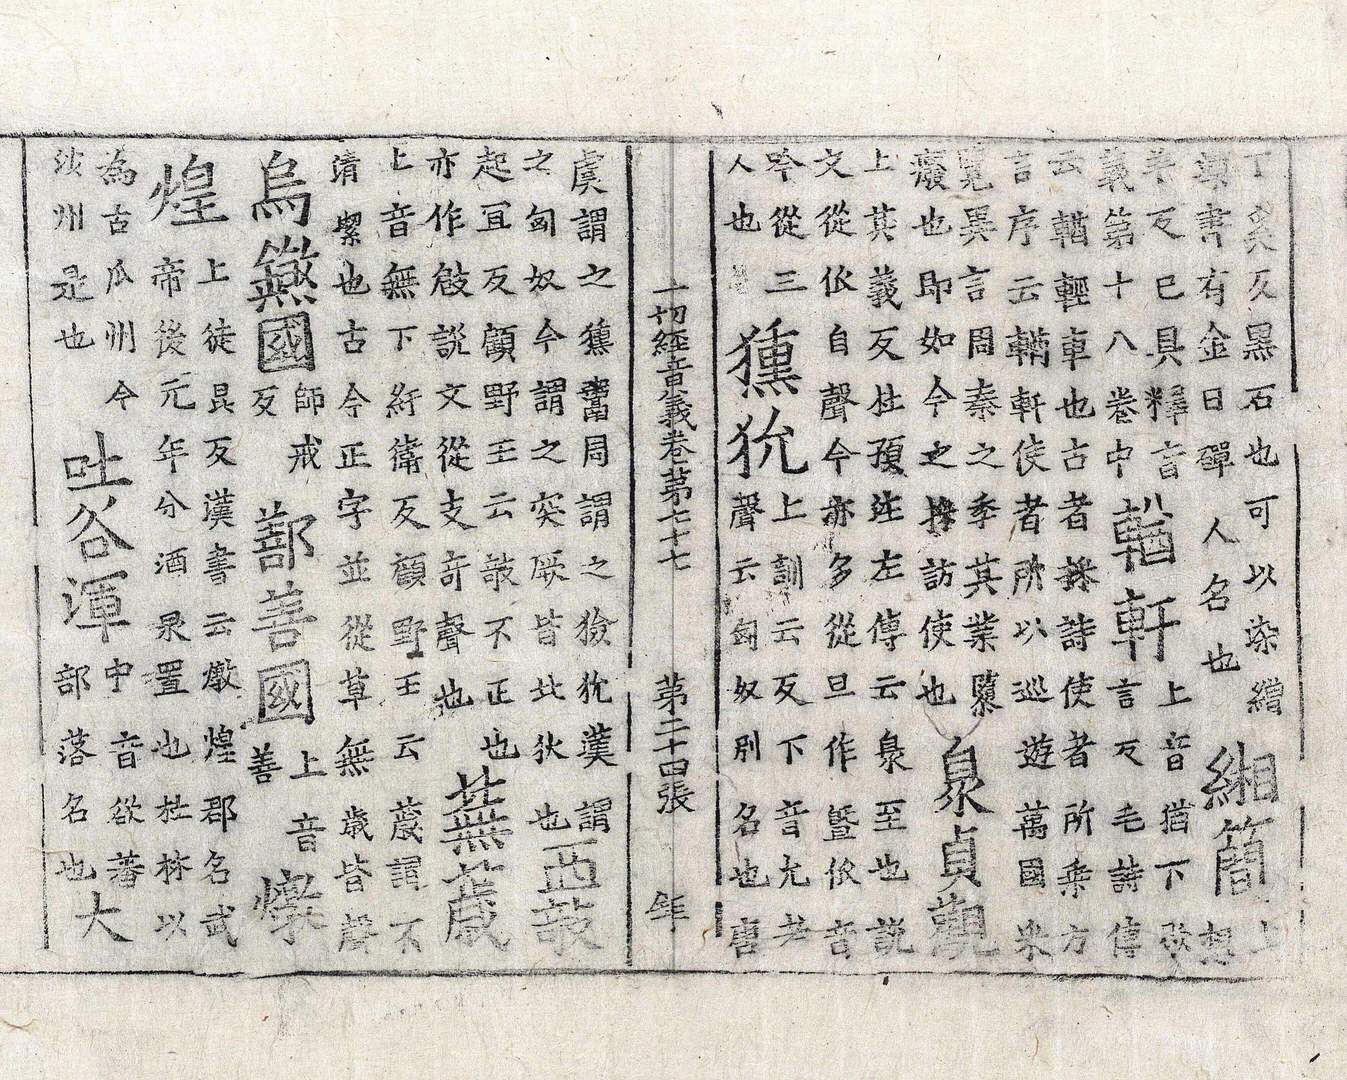 丁奚反黑石也可以染繒
磾書有金日磾人名也
緗簡
上
想
羊反已具釋音
義第十八卷中
輶軒
上音猶下歇
言反毛詩傳
云輶輕車也古者採詩使者所乘方
言序云輶軒使者所以巡遊萬國采
覽異言周秦之季其業隳
癈也即如今之採訪使也
臮貞觀
上其義反杜預注左傳云臮至也説
文從㐺自聲今亦多從旦作暨㐺音
吟從三
人也
獯狁
上訓云反下音允考
聲云匈奴別名也唐
一切經音義卷第七十七 第二十四張 鉅
虞謂之獯鬻周謂之獫狁漢謂
之匈奴今謂之突厥皆北狄也
西敧
起宜反顧野王云敧不正也
亦作攲説文從支奇聲也
蕪薉
上音無下紆衛反顧野王云薉謂不
清潔也古今正字並從草無歲皆聲
烏鎩國
師戒
反
鄯善國
上音
善
燉
煌
上徒昆反漢書云燉煌郡名武
帝後元年分酒泉置也杜林以
為古瓜州今
沙州是也
吐谷渾
中音欲著
部落名也
大